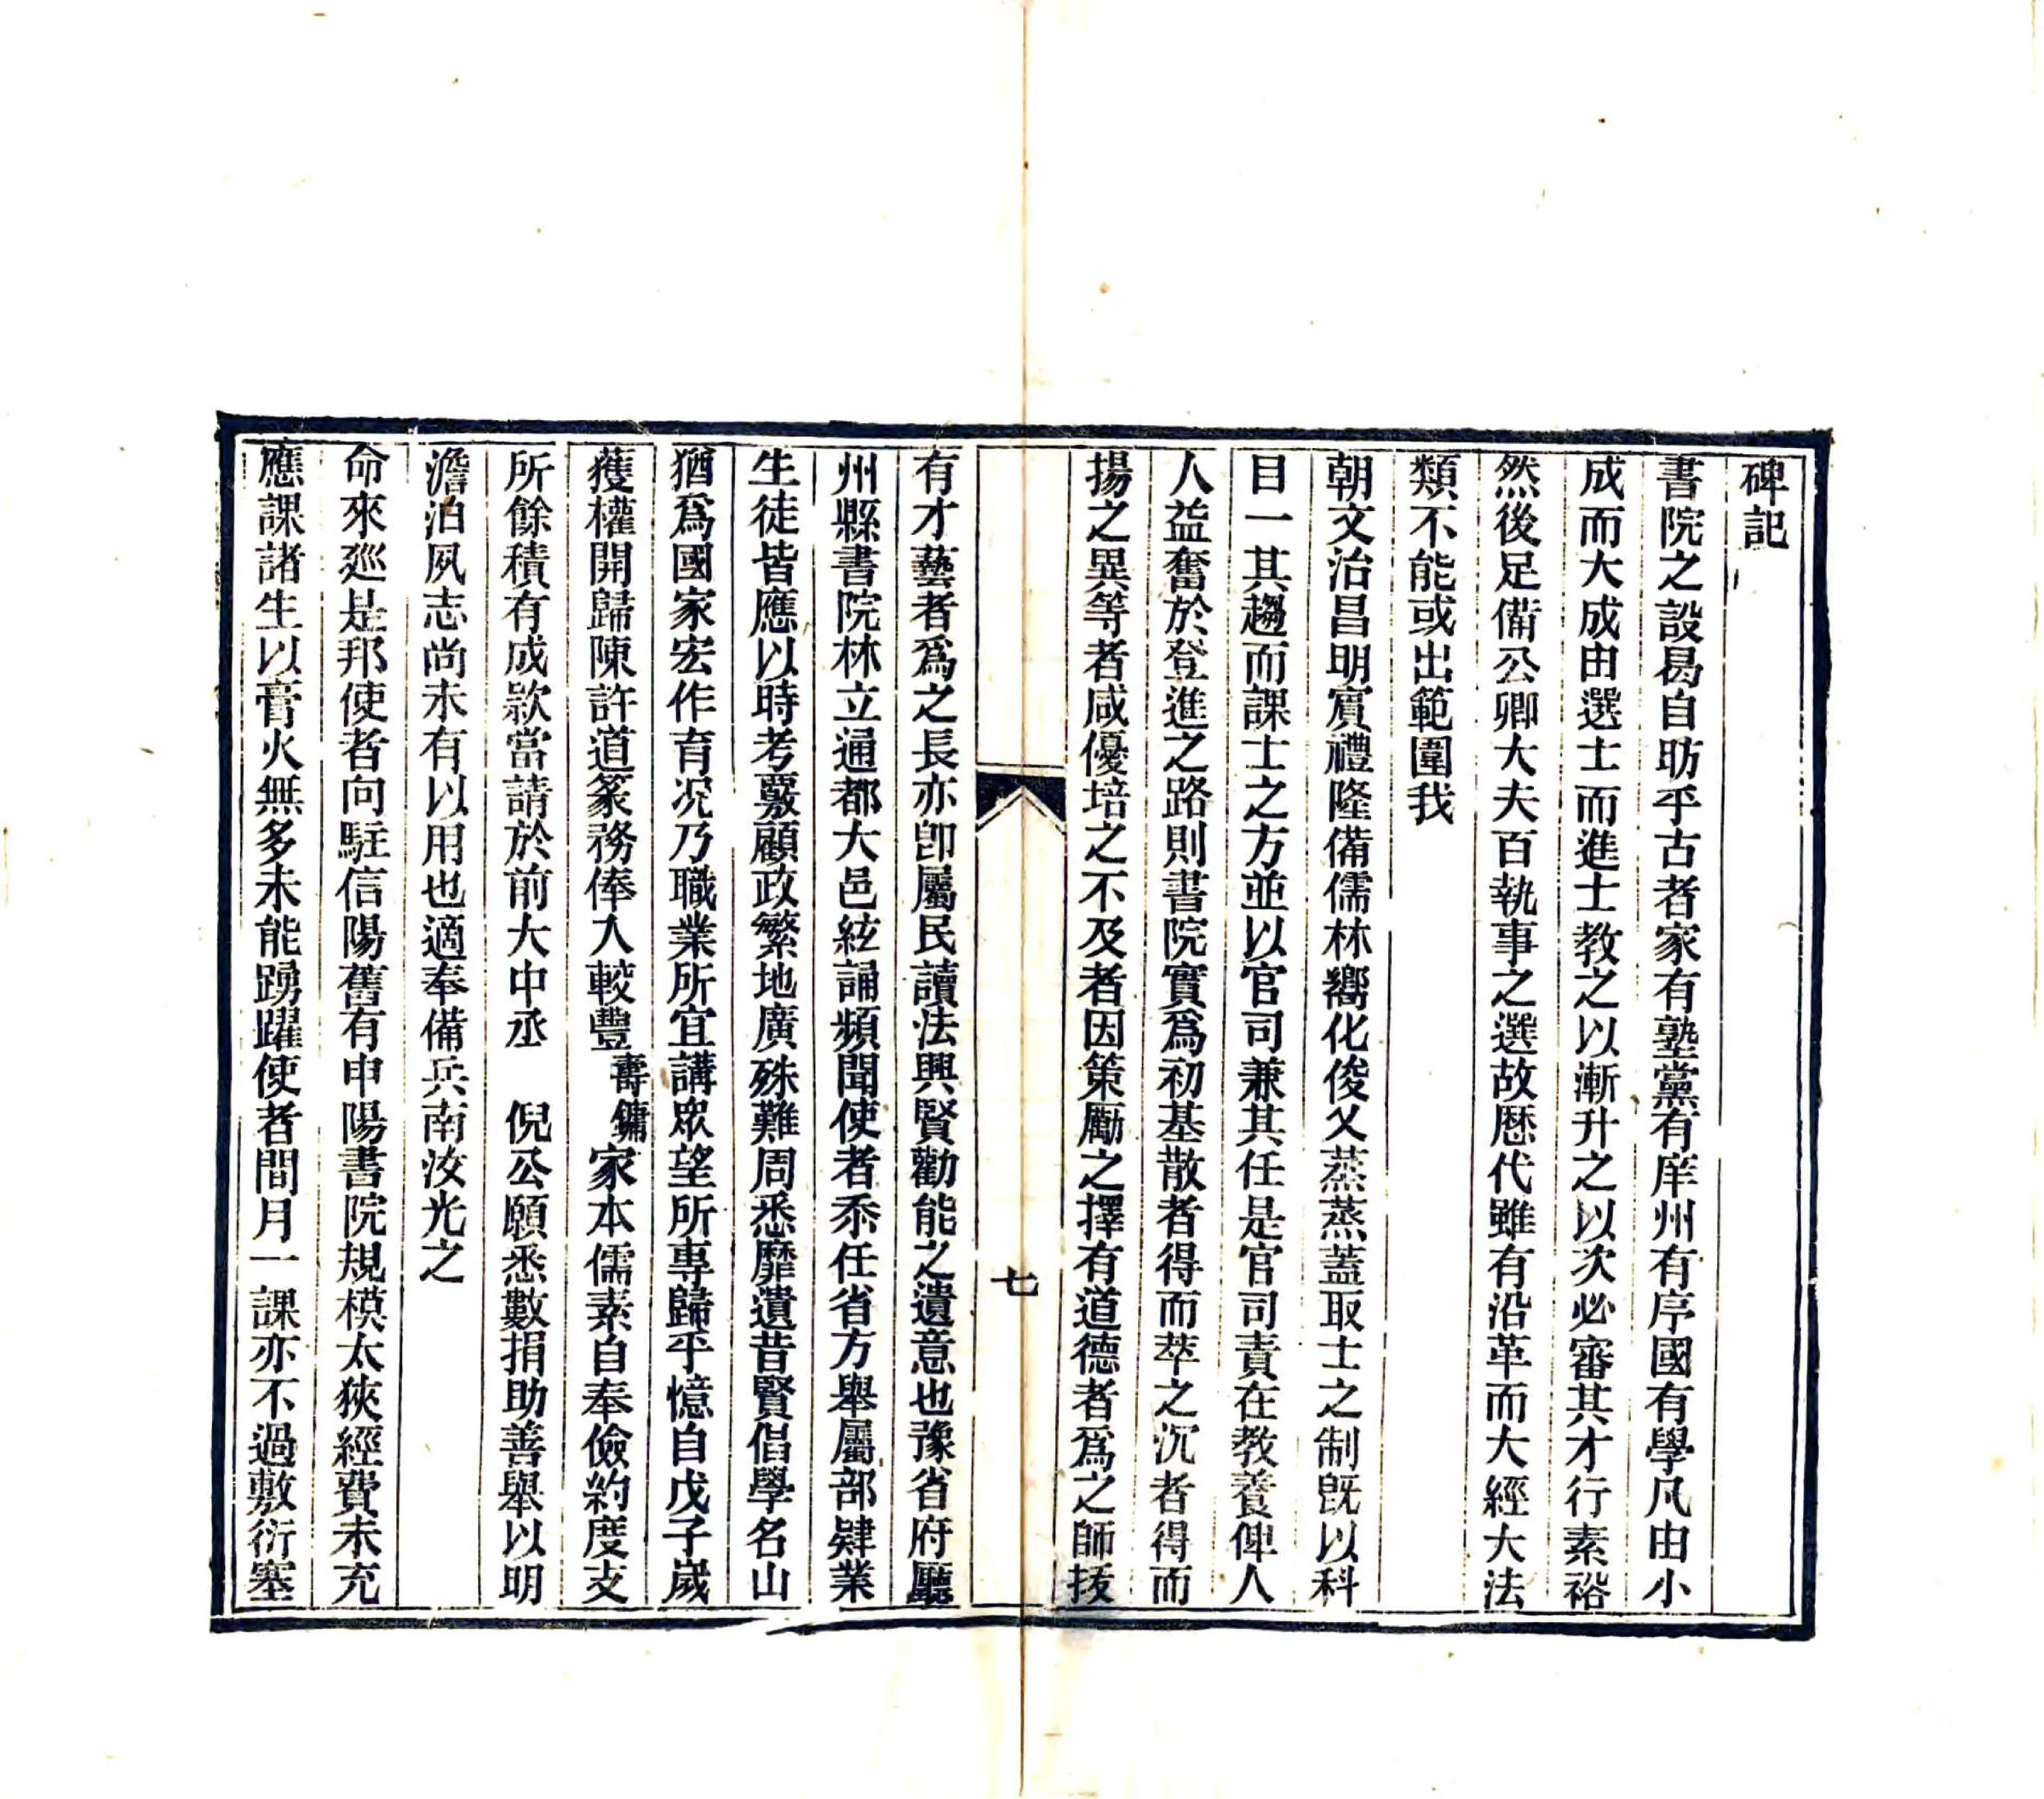 碑記
書院之設曷自昉乎古者家有塾黨有庠州有序國有學凡由小
成而大成由選士而進士教之以漸升之以次必審其才行素裕
然後足備公卿大夫百執事之選故歷代雖有沿革而大經大法
類不能或出範圍我
朝文治昌明賓禮隆備儒林嚮化俊乂蒸蒸蓋取士之制旣以科
目一其趨而課士之方並以官司兼其任是官司責在教養俾人
人益奮於登進之路則書院實爲初基散者得而萃之沉者得而
揚之異等者咸優培之不及者因策勵之擇有道德者爲之師拔
七
有才藝者爲之長亦卽屬民讀法興賢勸能之遺意也豫省府廳
州縣書院林立通都大邑絃誦頻聞使者忝任省方舉屬部肄業
生徒皆應以時考覈顧政繁地廣殊難周悉靡遺昔賢倡學名山
猶爲國家宏作育況乃職業所宜講眾望所專歸乎憶自戊子歲
獲權開歸陳許道篆務俸入較豐壽鏞家本儒素自奉儉約度支
所餘積有成款當請於前大中丞　倪公願悉數捐助善舉以明
澹泊夙志尚未有以用也適奉備兵南汝光之
命來巡是邦使者向駐信陽舊有申陽書院規模太狹經費未充
應課諸生以膏火無多未能踴躍使者間月一課亦不過敷衍塞